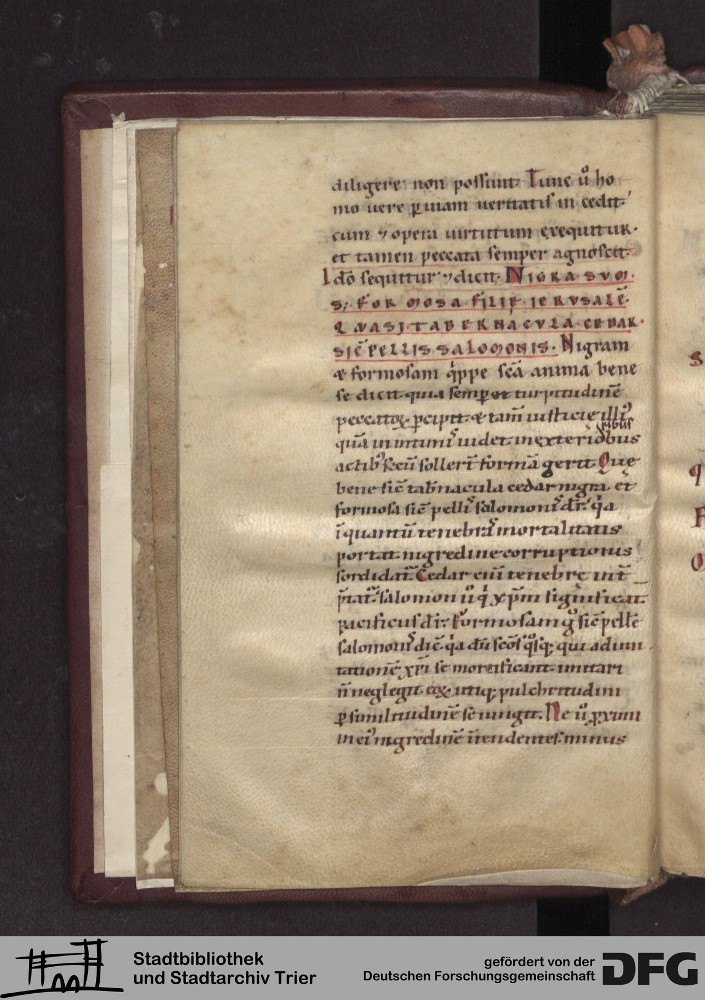 diligere non possunt. Tunc ů ho
mo uere ꝑ uiam ueritatis incedit.
cum ⁊ opera uirtutum exequitur.
et tamen peccata semper agnoscit.
Ido sequitur ⁊ dicit. NIGRA SVM
S; FORMOSA FILIE IERVSALĒ.
QVASI TABERNACVLA CEDAR.
SIC̄ PELLIS SALOMONIS. Nigram
& formosam q̇ppe sc̄a anima bene
se dicit. quia semper et turpitudinē
peccatoꝝ ꝑcipit. & tam̄ iusticie illiꝰ
quā in intimis uidet. in exterioribus
actibꝰ formā gerit. Que
bene sic̄ tab̄nacula cedar nigra. et
formosa sic̄ pellis salomonis dr̄. q̇a
īquantū tenebras mortalitatis
portat. nigredine corruptionis
sordidat᷑. Cedar eni tenebre int̄
p̄tat᷑. salomon ů q̇ xp̄m significat.
pacificus dr̄. Formosam g̊ sic̄ pellē
salomonis dic̄. q̇a
tationē xp̄i se mortificant. imitari
n̄ neglegit. utiq; pulchritudini
ꝑ similitudinē se iungit. Ne ů ꝓximi
in eis nigredinē ītendentes. minus
Stadtbibliothek
und Stadtarchiv Trier
gefördert von der
Deutschen Forschungsgemeinschaft
DFG